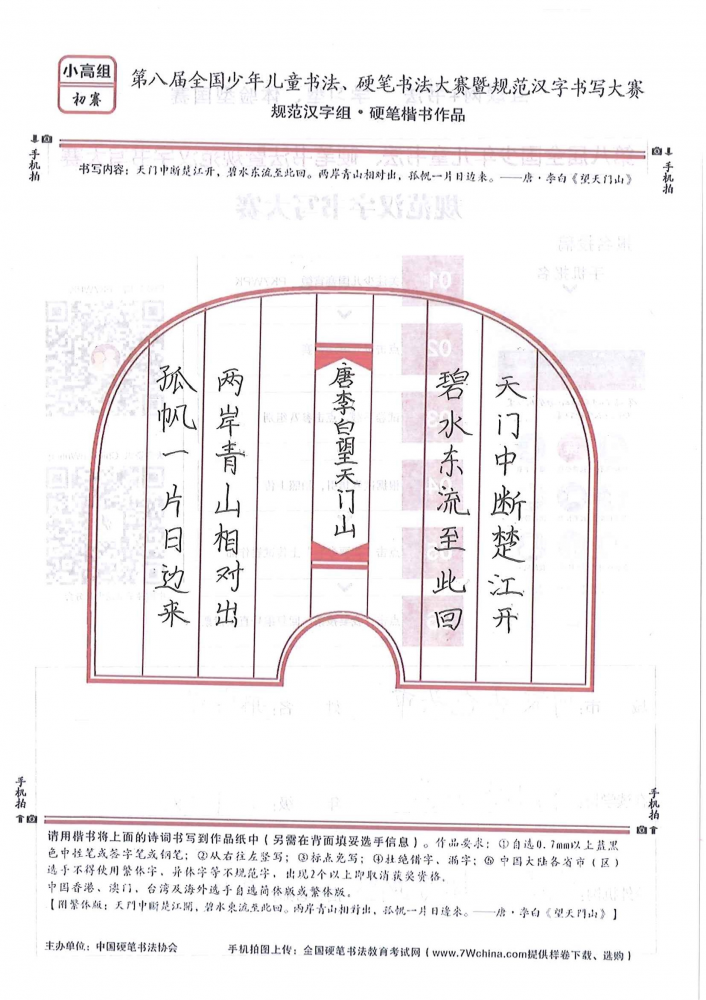 小高组
初赛
第八届全国少年儿童书法、硬笔书法大赛暨规范汉字书写大赛
规范汉字组·硬笔楷书作品
手机拍
手机拍
书写内容：天门中断楚江开，碧水东流至此回。两岸青山相对出，孤帆一片日边来。——唐·李白《望天门山》
天门中断楚江开
碧水东流至此回
唐李白望天门山
两岸青山相对出
孤帆一片日边来
手机拍
手机拍
请用楷书将上面的诗词书写到作品纸中（另需在背面填妥选手信息）。作品要求：①自选0.7mm以上蓝黑
色中性笔或签字笔或钢笔；②从右往左竖写；③标点免写；④杜绝错字、漏字；⑤中国大陆各省市（区）
选手不得使用繁体字，异体字等不规范字，出现2个以上即取消获奖资格。
中国香港、澳门、台湾及海外选手自选简体版或繁体版。
【附繁体版：天門中斷楚江開，碧水東流至此回。两岸青山相對出，孤帆一片日邊來。——唐·李白《望天門山》】
主办单位：中国硬笔书法协会
手机拍图上传：全国硬笔书法教育考试网（www.7Wchina.com提供样卷下载、选购）